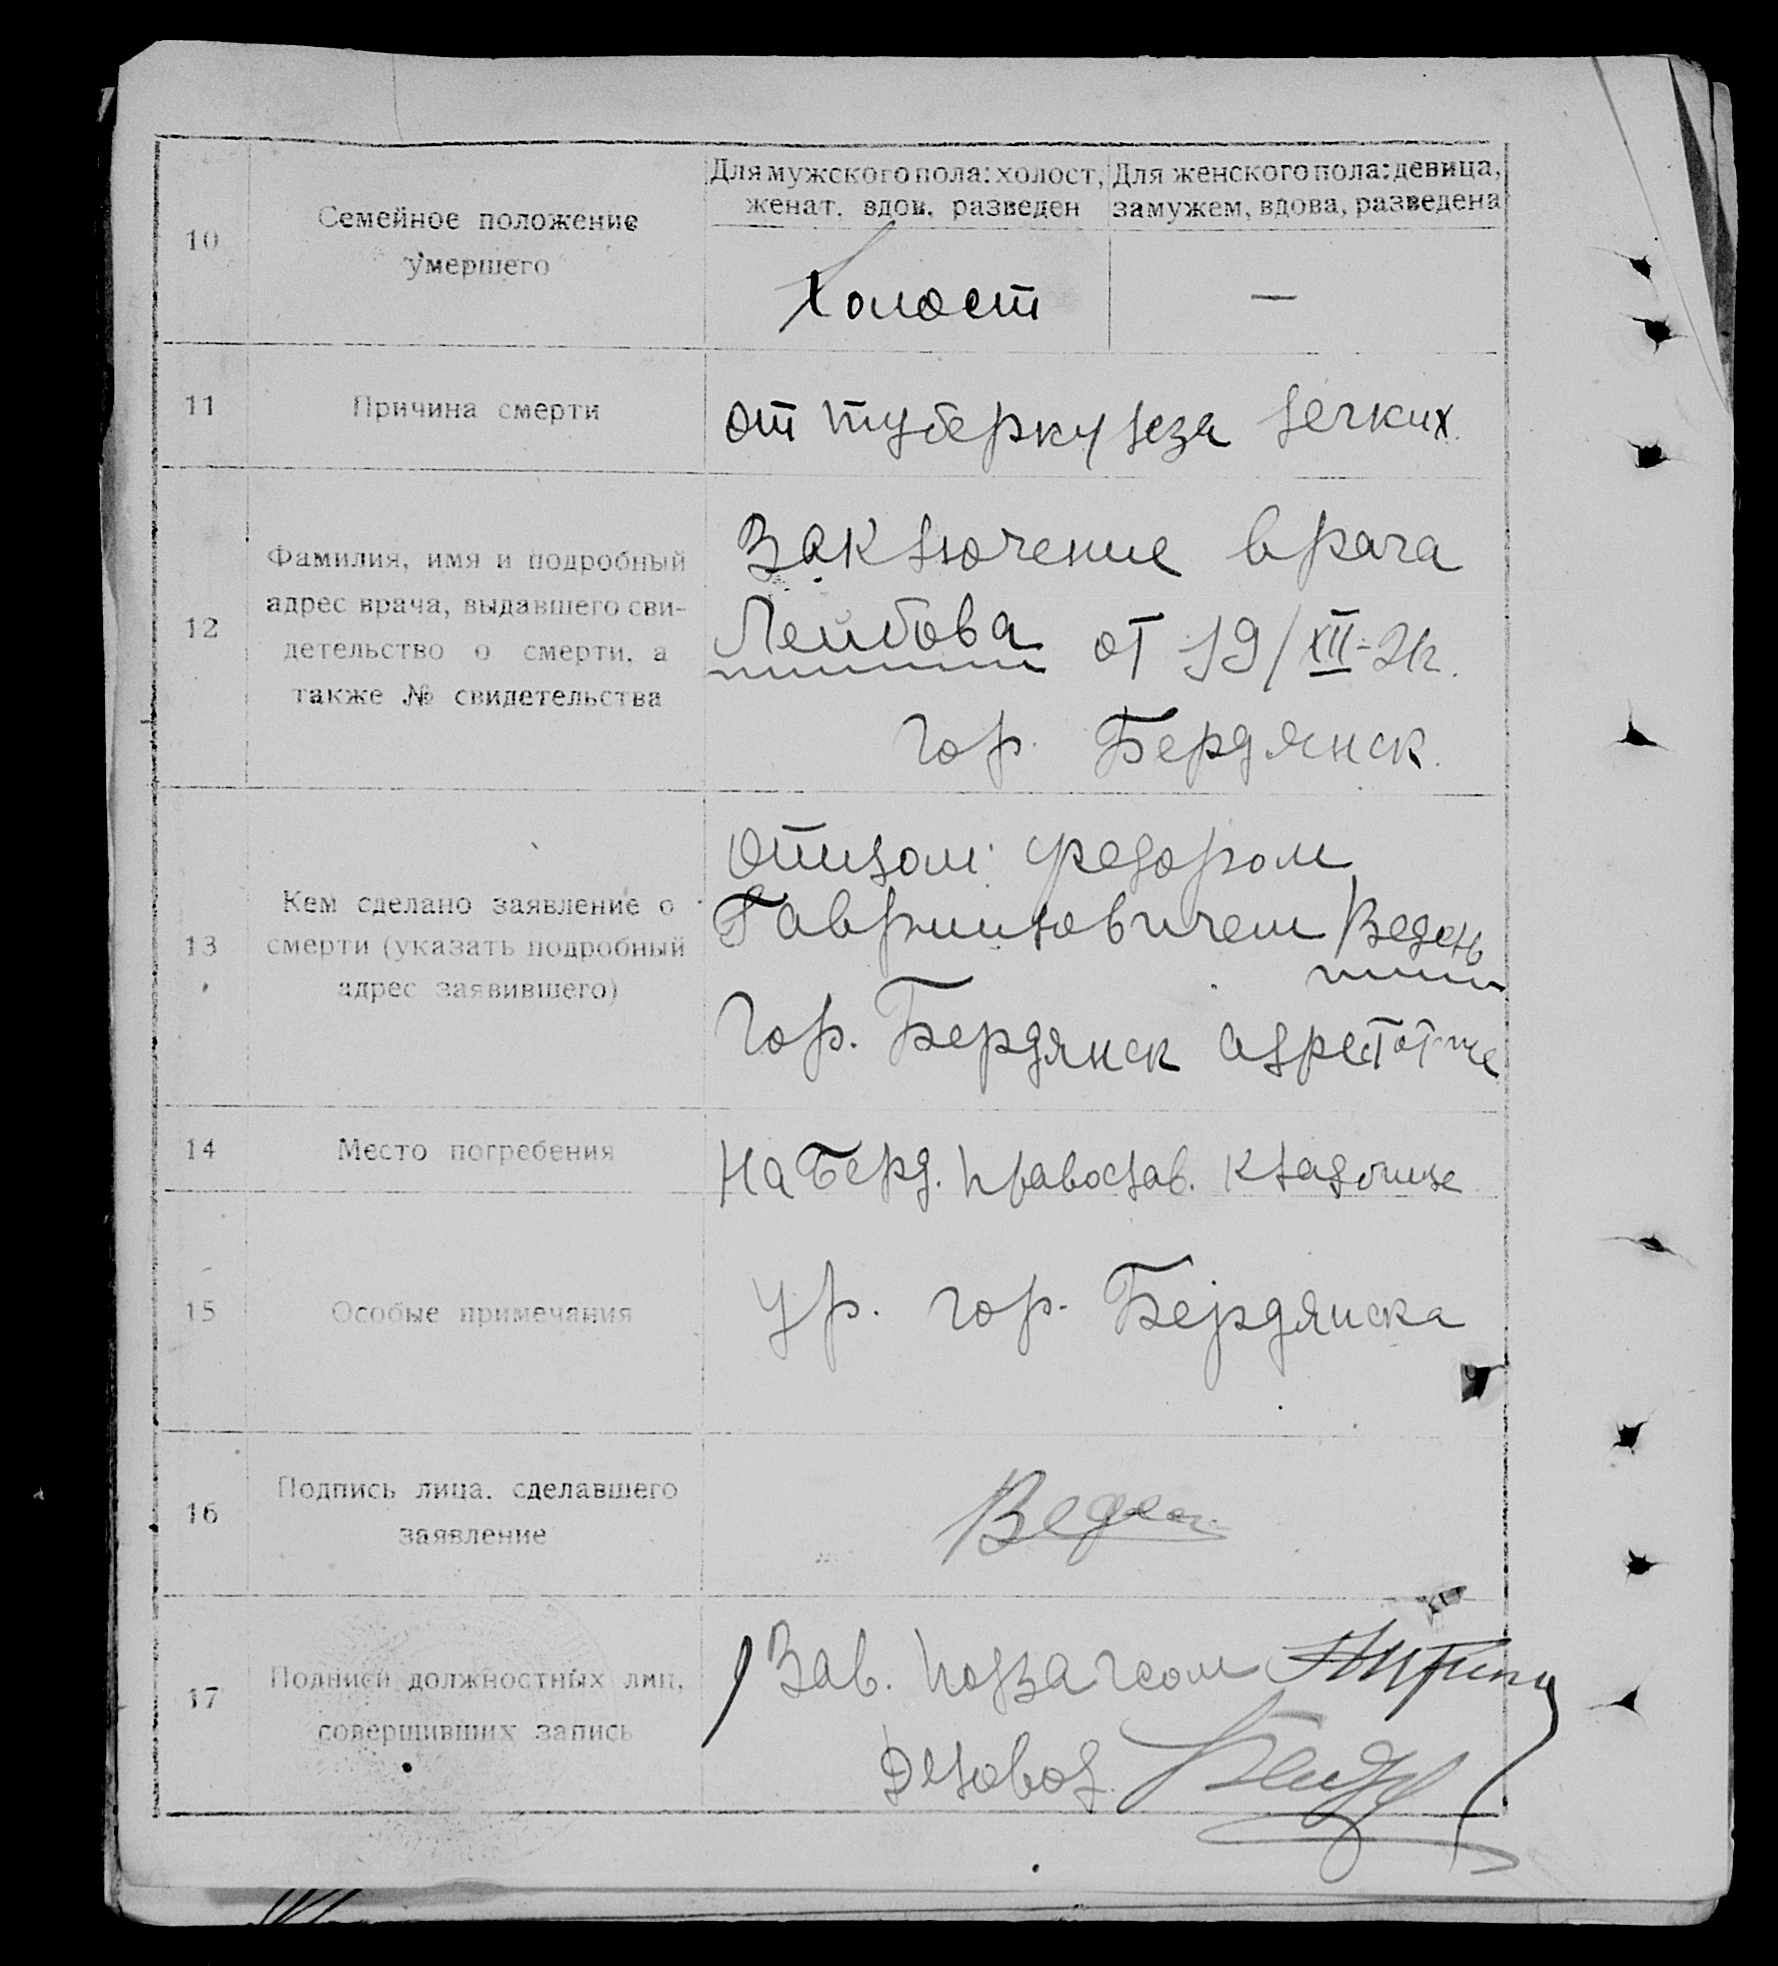 10
Семейное положение
умершего
Для мужского пола: холост,
женат, вдов, разведен
Для женского пола: девица,
замужем, вдова, разведена
Холост
—
11
Причина смерти
от туберкулеза легких.
12
Фамилия, имя и подробный
адрес врача, выдавшего сви-
детельство о смерти, а
также № свидетельства
Заключение врача
Лейбова от 19/XII-21г.
гор. Бердянск.
13
Кем сделано заявление о
смерти (указать подробный
адрес заявившего)
Отцом: Федором
Гавриловичем Ведень
Гор. Бердянск
14
Место погребения
На Берд. православ. кладбище
15
Особые примечания
Ур. гор. Бердянска
16
Подпись лица, сделавшего
заявление
Веден
17
Подписи должностных лиц,
совершивших запись
Зав. подзагсом
Деловод.